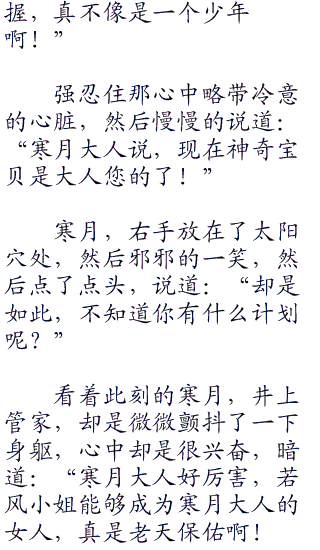 握，真不像是一个少年
啊！”
强忍住那心中略带冷意
的心脏，然后慢慢的说道：
“寒月大人说，现在神奇宝
贝是大人您的了！”
寒月，右手放在了太阳
穴处，然后邪邪的一笑，然
后点了点头，说道：“却是
如此，不知道你有什么计划
呢？”
看着此刻的寒月，井上
管家，却是微微颤抖了一下
身躯，心中却是很兴奋，暗
道：“寒月大人好厉害，若
风小姐能够成为寒月大人的
女人，真是老天保佑啊！